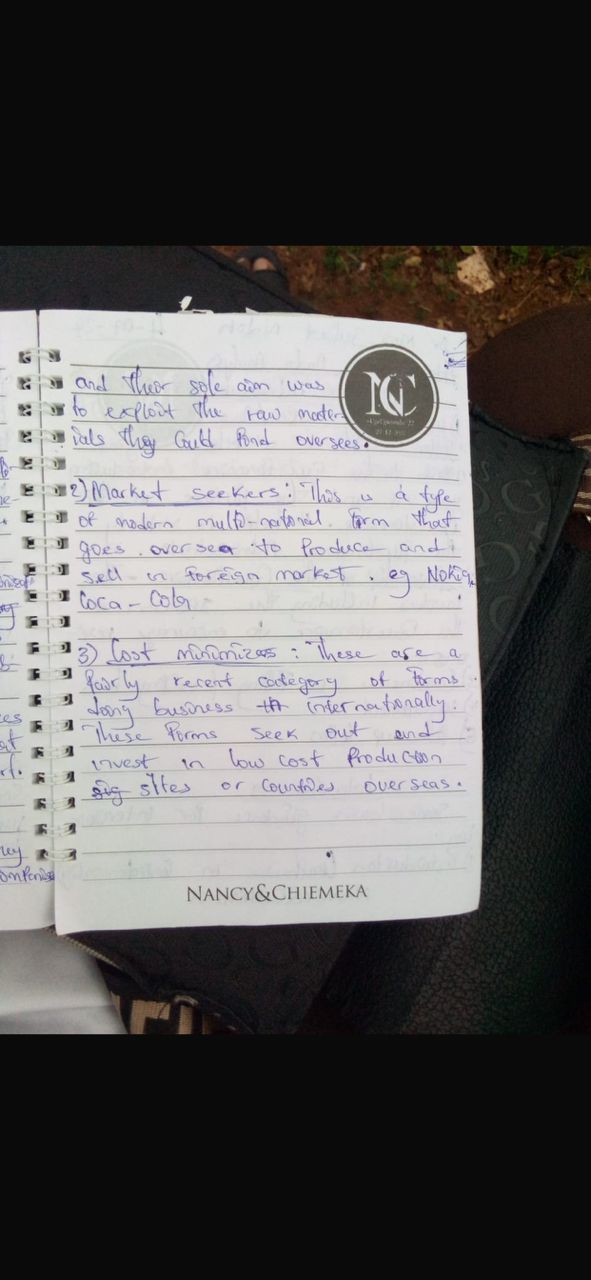 and their sole aim was
to exploit the raw mater-
ials they could find oversees.
2) Market seekers: This is a type
of modern multi-national firm that
goes oversea to Produce and
sell in foreign market. eg Nokia,
Coca-Cola
3) Cost minimizes: These are a
fairly recent category of firms
doing business internationally.
These firms seek out and
invest in low cost Production
sites or countries overseas.
NC
NANCY&CHIEMEKA